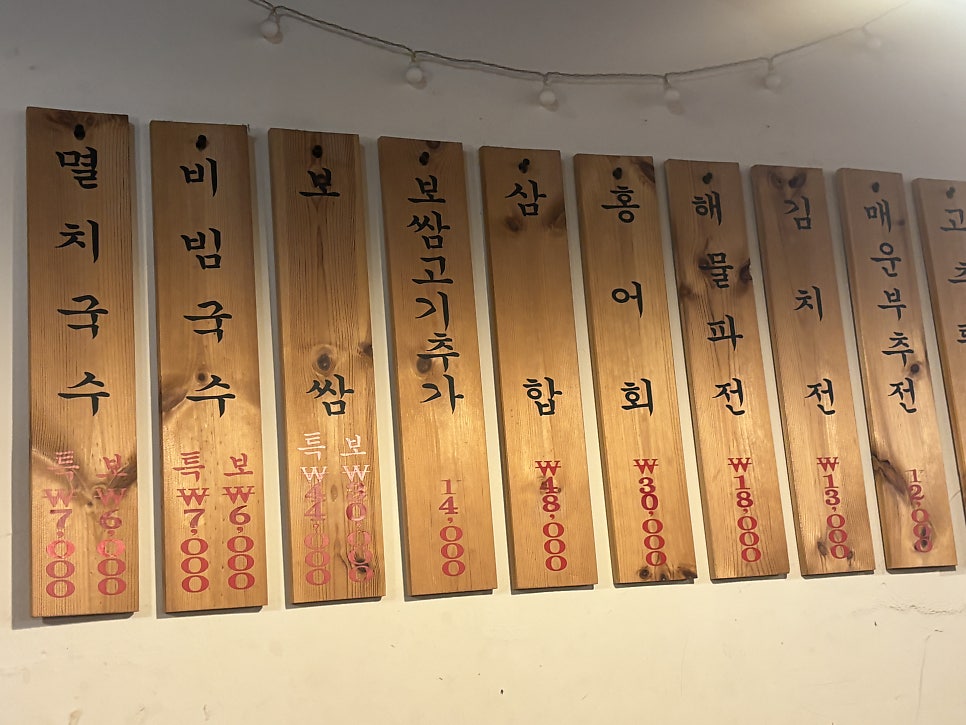 멸치국수
특 ₩7,000
보 ₩6,000
비빔국수
특 ₩7,000
보 ₩6,000
보쌈
특 ₩44,000
보
보쌈고기추가
14,000
삼합
₩48,000
홍어회
₩30,000
해물파전
₩18,000
김치전
₩13,000
매운부추전
12,000
고추